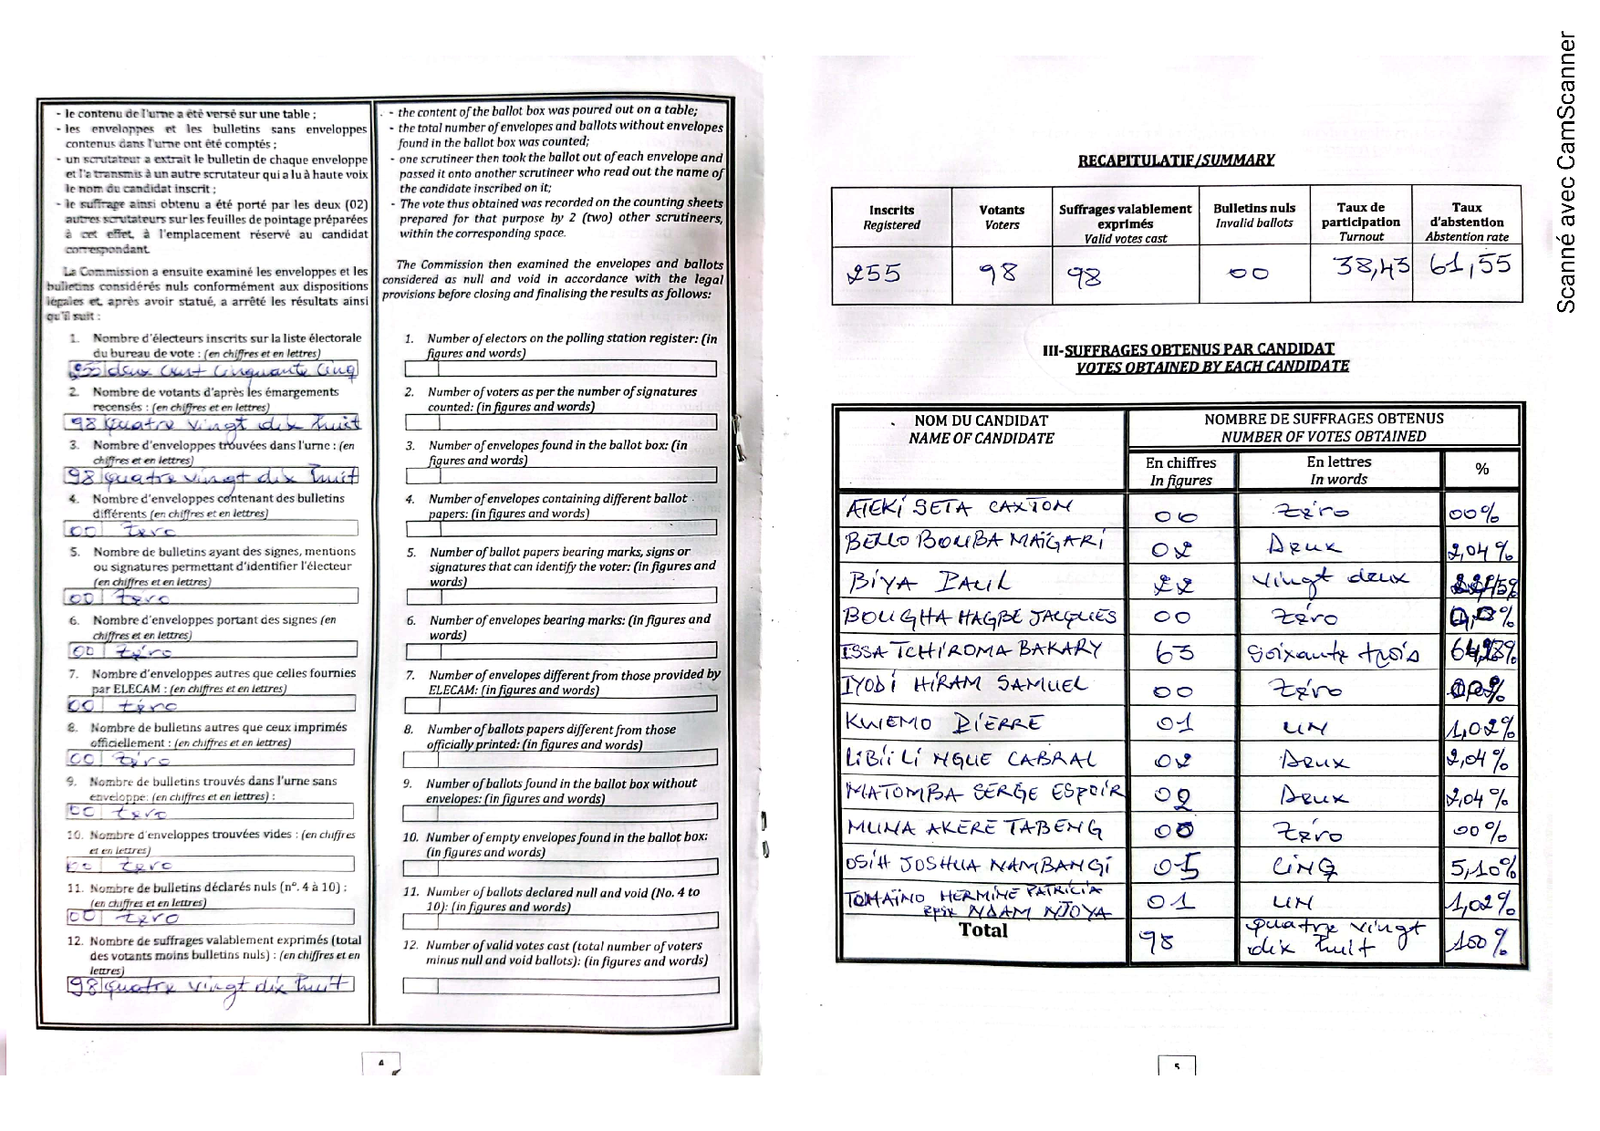 - le contenu de l'urne a été versé sur une table ;
- les enveloppes et les bulletins sans enveloppes
contenus dans l'urne ont été comptés ;
- un scrutateur a extrait le bulletin de chaque enveloppe
et l'a transmis à un autre scrutateur qui a lu à haute voix
le nom du candidat inscrit ;
- le suffrage ainsi obtenu a été porté par les deux (02)
autres scrutateurs sur les feuilles de pointage préparées
à cet effet, à l'emplacement réservé au candidat
correspondant.
La Commission a ensuite examiné les enveloppes et les
bulletins considérés nuls conformément aux dispositions
légales et, après avoir statué, a arrêté les résultats ainsi
qu'il suit :
1. Nombre d'électeurs inscrits sur la liste électorale
du bureau de vote : (en chiffres et en lettres)
255 deux cent cinquante cinq
2. Nombre de votants d'après les émargements
recensés : (en chiffres et en lettres)
98 quatre vingt dix huit
3. Nombre d'enveloppes trouvées dans l'urne : (en
chiffres et en lettres)
98 quatre vingt dix huit
4. Nombre d'enveloppes contenant des bulletins
différents (en chiffres et en lettres)
00 zéro
5. Nombre de bulletins ayant des signes, mentions
ou signatures permettant d'identifier l'électeur
(en chiffres et en lettres)
00 zéro
6. Nombre d'enveloppes portant des signes (en
chiffres et en lettres)
00 zéro
7. Nombre d'enveloppes autres que celles fournies
par ELECAM : (en chiffres et en lettres)
00 zéro
8. Nombre de bulletins autres que ceux imprimés
officiellement : (en chiffres et en lettres)
00 zéro
9. Nombre de bulletins trouvés dans l'urne sans
enveloppe: (en chiffres et en lettres) :
00 zéro
10. Nombre d'enveloppes trouvées vides : (en chiffres
et en lettres)
00 zéro
11. Nombre de bulletins déclarés nuls (n°. 4 à 10) :
(en chiffres et en lettres)
00 zéro
12. Nombre de suffrages valablement exprimés (total
des votants moins bulletins nuls) : (en chiffres et en
lettres)
98 quatre vingt dix huit
- the content of the ballot box was poured out on a table;
- the total number of envelopes and ballots without envelopes
found in the ballot box was counted;
- one scrutineer then took the ballot out of each envelope and
passed it onto another scrutineer who read out the name of
the candidate inscribed on it;
- The vote thus obtained was recorded on the counting sheets
prepared for that purpose by 2 (two) other scrutineers,
within the corresponding space.
The Commission then examined the envelopes and ballots
considered as null and void in accordance with the legal
provisions before closing and finalising the results as follows:
1. Number of electors on the polling station register: (in
figures and words)
2. Number of voters as per the number of signatures
counted: (in figures and words)
3. Number of envelopes found in the ballot box: (in
figures and words)
4. Number of envelopes containing different ballot
papers: (in figures and words)
5. Number of ballot papers bearing marks, signs or
signatures that can identify the voter: (in figures and
words)
6. Number of envelopes bearing marks: (in figures and
words)
7. Number of envelopes different from those provided by
ELECAM: (in figures and words)
8. Number of ballots papers different from those
officially printed: (in figures and words)
9. Number of ballots found in the ballot box without
envelopes: (in figures and words)
10. Number of empty envelopes found in the ballot box:
(in figures and words)
11. Number of ballots declared null and void (No. 4 to
10): (in figures and words)
12. Number of valid votes cast (total number of voters
minus null and void ballots): (in figures and words)
4
RECAPITULATIF/SUMMARY
Inscrits Registered Votants Voters Suffrages valablement exprimés Valid votes cast Bulletins nuls Invalid ballots Taux de participation Turnout Taux d'abstention Abstention rate
255 98 98 00 38,43 61,55
III-SUFFRAGES OBTENUS PAR CANDIDAT
VOTES OBTAINED BY EACH CANDIDATE
NOM DU CANDIDAT NOMBRE DE SUFFRAGES OBTENUS
NAME OF CANDIDATE NUMBER OF VOTES OBTAINED
En chiffres En lettres %
In figures In words
ATEKI SETA CAXTON 00 Zéro 00%
BELLO BOUBA MAÏGARI 02 Deux 2,04%
BIYA PAUL 22 Vingt deux
BOUGHA HAGBE JACQUES 00 Zéro
ISSA TCHIROMA BAKARY 63 Soixante trois
IYODI HIRAM SAMUEL 00 Zéro
KWEMO PIERRE 01 UN 1,02%
LIBII LI NGUE CABRAL 02 Deux 2,04%
MATOMBA SERGE ESPOIR 02 Deux 2,04%
MUNA AKERE TABENG 00 Zéro 00%
OSIH JOSHUA NAMBANGI 05 CINQ 5,10%
TOMAÏNO HERMINE PATRICIA
Epse NDAM NJOYA 01 UN 1,02%
Total 98 quatre vingt dix huit 100%
5
Scanné avec CamScanner